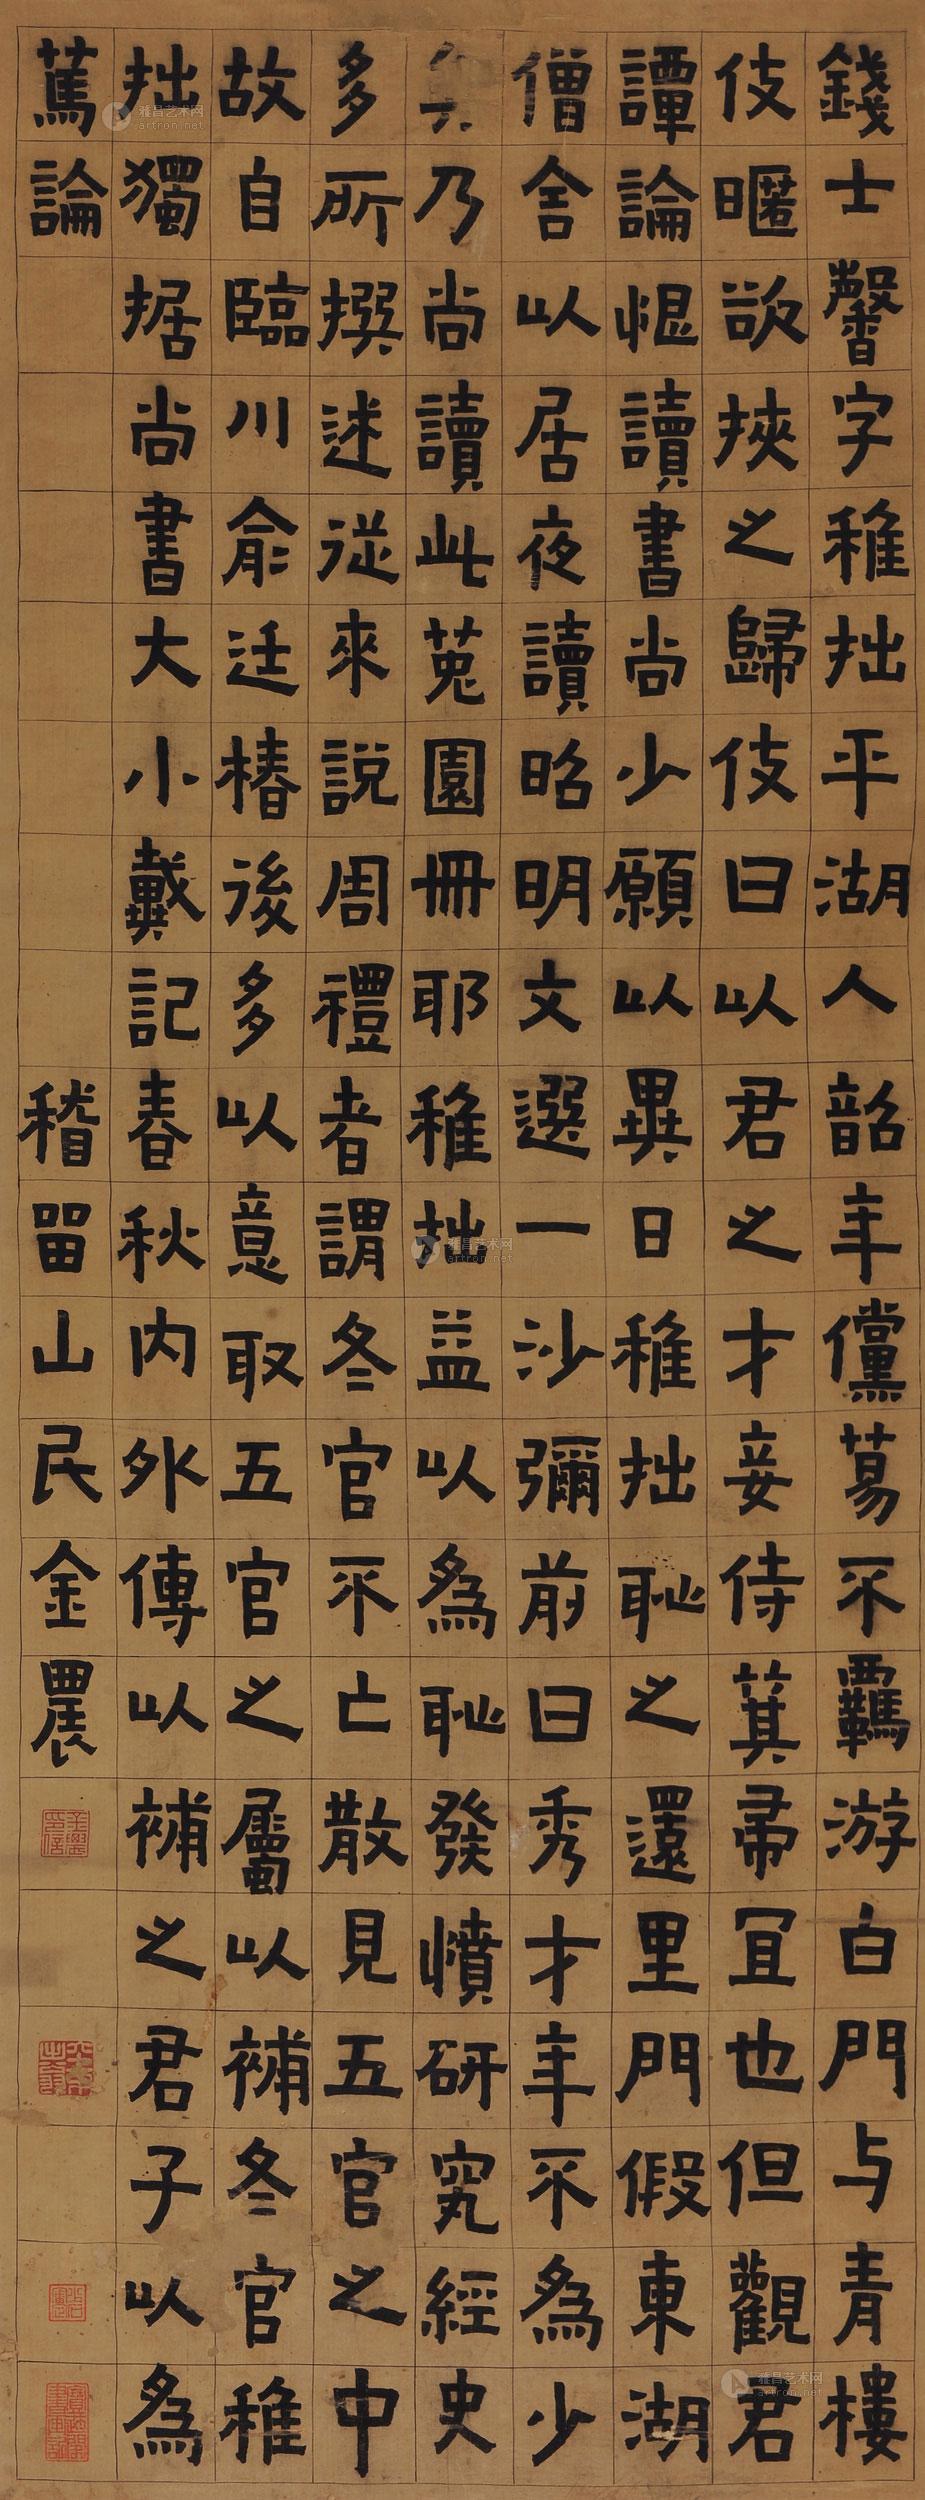 錢士馨字稚拙平湖人韶年儻蕩不羈游白門与青樓
伎暱欲挾之歸伎曰以君之才妾侍箕帚宜也但觀君
譚論惃讀書尚少願以異日稚拙恥之還里門假東湖
僧舍以居夜讀昭明文選一沙彌前曰秀才年不為少
矣乃尚讀此菟園冊耶稚拙益以為恥發憤研究經史
多所撰述從來說周禮者謂冬官不亡散見五官之中
故自臨川俞廷椿後多以意取五官之屬以補冬官稚
拙獨据尚書大小戴記春秋內外傳以補之君子以為
篤論 稽留山民金農
雅昌艺术网
artron.net
雅昌艺术网
artron.net
雅昌艺术网
artron.net